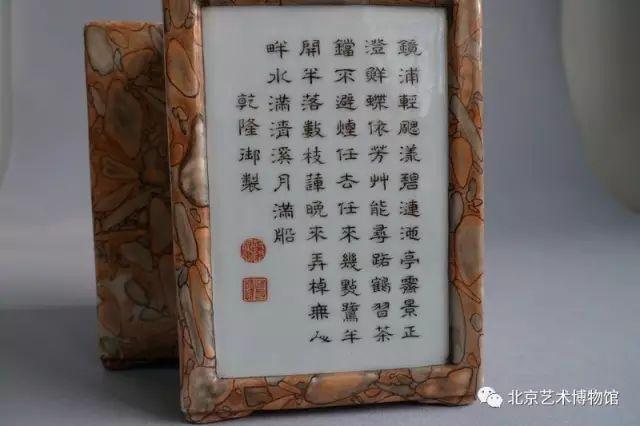 鏡浦輕颸漾碧漣池亭霽景正
澄鮮蝶依芳艸能尋路鶴習茶
鐺不避煙任去任來幾點鷺半
開半落數枝蓮晚來弄棹無人
畔水滿清溪月滿船
乾隆御製
北京艺术博物馆